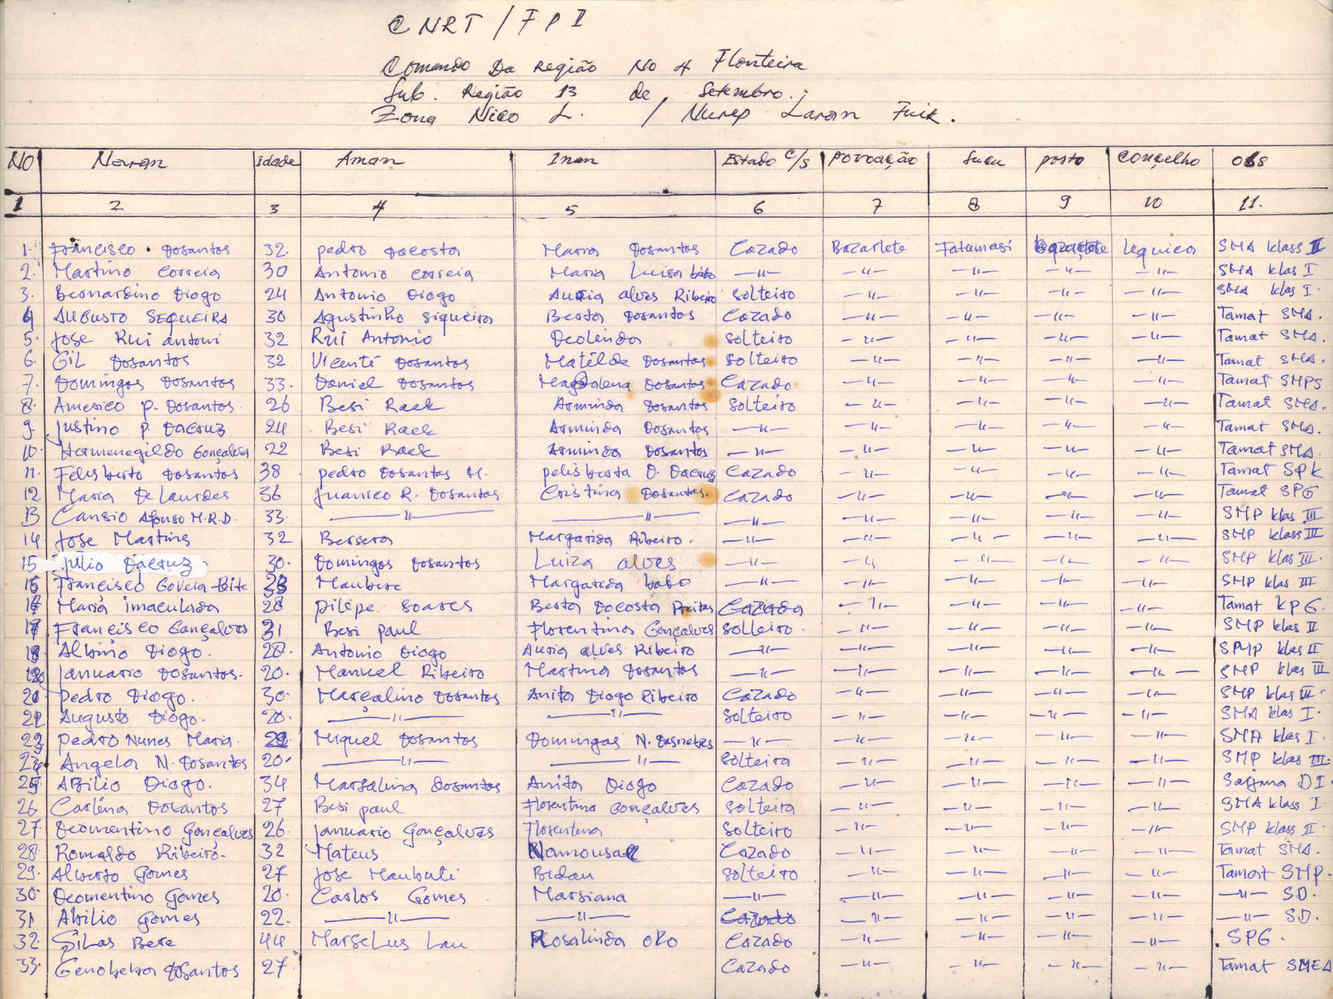 CNRT / FPI
Comando Da Região No 4 Flonteira
Sub. Região 13 de Setembro.
Zona Nico L. / Nurep Laran Fuik.
NO Naran idade Aman Inan Estado C/S povoação Sucu posto Conçelho obs
1 2 3 4 5 6 7 8 9 10 11.
1. Francisco Dosantos 32 pedro Dacosta Maria Dosantos Cazado Bazartete Fatumasi Lequica SMA klass II
2. Martino Correia 30 Antonio Correia Maria Luisa -"- -"- -"- -"- -"- SMA klas I
3. Bernardino Diogo 24 Antonio Diogo Auria alves Ribeiro Solteiro -"- -"- -"- -"- SMA klas I.
4 AUGUSTO SEQUEIRA 30 Agustinho Siqueira Berta Dosantos Cazado -"- -"- -"- -"- Tamat SMA.
5. Jose Rui antoni 32 Rui Antonio Deolinda Solteiro -"- -"- -"- -"- Tamat SMA.
6. Gil Dosantos 32 Vicente Dosantos Matilde Dosantos Solteiro -"- -"- -"- -"- Tamat SMA.
7. Domingos Dosantos 33. Daniel Dosantos Magdalena Dosantos Cazado -"- -"- -"- -"- Tamat SMPS
8. Americo p. Dosantos 26 Besi Raek Arminda Dosantos Solteiro -"- -"- -"- -"- Tamat SMA.
9. Justino p. Dacruz 24 Besi Raek Arminda Dosantos -"- -"- -"- -"- -"- Tamat SMA.
10. Hermenegildo Gonçalves 22 Besi Raek Arminda Dosantos -"- -"- -"- -"- -"- Tamat SMA.
11. Felisberto Dosantos 38 pedro Dosantos M. pelisberta D. Dacruz Cazado -"- -"- -"- -"- Tamat SPK
12 Maria De Lourdes 36 Juanico R. Dosantos Cristina Dosantos. Cazado -"- -"- -"- -"- Tamat SPG
13 Cansio Afonso M.R.D. 33. -"- -"- -"- -"- -"- -"- -"- SMP klas III
14 Jose Martins 32 Bersera Margarida Ribeiro. -"- -"- -"- -"- -"- SMP klass III
15 Julio Dacruz. 30. Domingos Dosantos Luiza alves -"- -"- -"- -"- -"- SMP klas III.
16 Francisco Govcia Bite 33 Maubere Margarida babo -"- -"- -"- -"- -"- SMP klas III
16 Maria imaculada 28 pilipe Soares Berta Dacosta Freitas Cazada -"- -"- -"- -"- Tamat KPG.
17 Francisco Gonçalves 31 Besi paul Florentina Gonçalves Solteiro. -"- -"- -"- -"- SMP klas II
18 Albino Diogo. 28. Antonio Diogo Auria alves Ribeiro -"- -"- -"- -"- -"- SMP klas II
Januario Dosantos. 20. Manuel Ribeiro Martina Dosantos -"- -"- -"- -"- -"- SMP klas III
20 Pedro Diogo. 30. Marcalino Dosantos Anita Diogo Ribeiro Cazado -"- -"- -"- -"- SMP klas III.
21 Augusto Diogo. 20. -"- -"- Solteiro -"- -"- -"- -"- SMA klas I.
23 Pedro Nunes Maria. Miquel Dosantos Domingas N. -"- -"- -"- -"- -"- SMA klas I.
24 Angela N. Dosantos 20. -"- -"- Solteira -"- -"- -"- -"- SMP klas III.
25 Abilio Diogo. 34 Marsalina Dosantos Anita Diogo Cazado -"- -"- -"- -"- Sarjana DI
26 Carlina Dosantos 27 Besi paul Florentina Gonçalves Solteira -"- -"- -"- -"- SMA klass I
27. Decomentino Gonçalves 26. Januario Gonçalves Florentina Solteiro -"- -"- -"- -"- SMP klass II.
28. Romaldo Ribeiro. 32 Mateus Namousa Cazado -"- -"- -"- -"- Tamat SMA.
29. Alberto Gomes 27 Jose Maubuti Bidau Solteiro -"- -"- -"- -"- Tamat SMP.
30. Decomentino Gomes 20. Carlos Gomes Marsiana -"- -"- -"- -"- -"- -"- SD.
31 Abilio Gomes 22. -"- -"- Cazado -"- -"- -"- -"- -"- SD.
32 Silas Bere 44 Marselus Lau Rosalinda oko Cazado -"- -"- -"- -"- SPG.
33. Genobeba Dosantos 27 Cazado -"- -"- -"- -"- Tamat SMEA